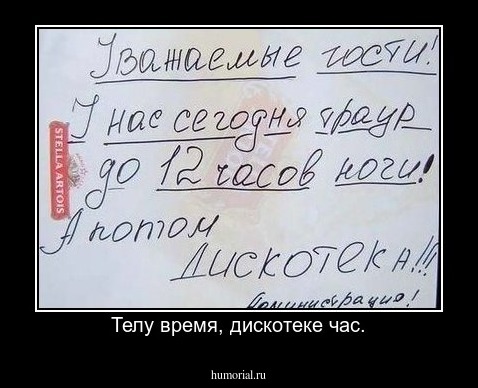 Уважаемые гости!
У нас сегодня траур
до 12 часов ночи!
А потом
Дискотека!!!
Администрация!
STELLA ARTOIS
Телу время, дискотеке час.
humorial.ru